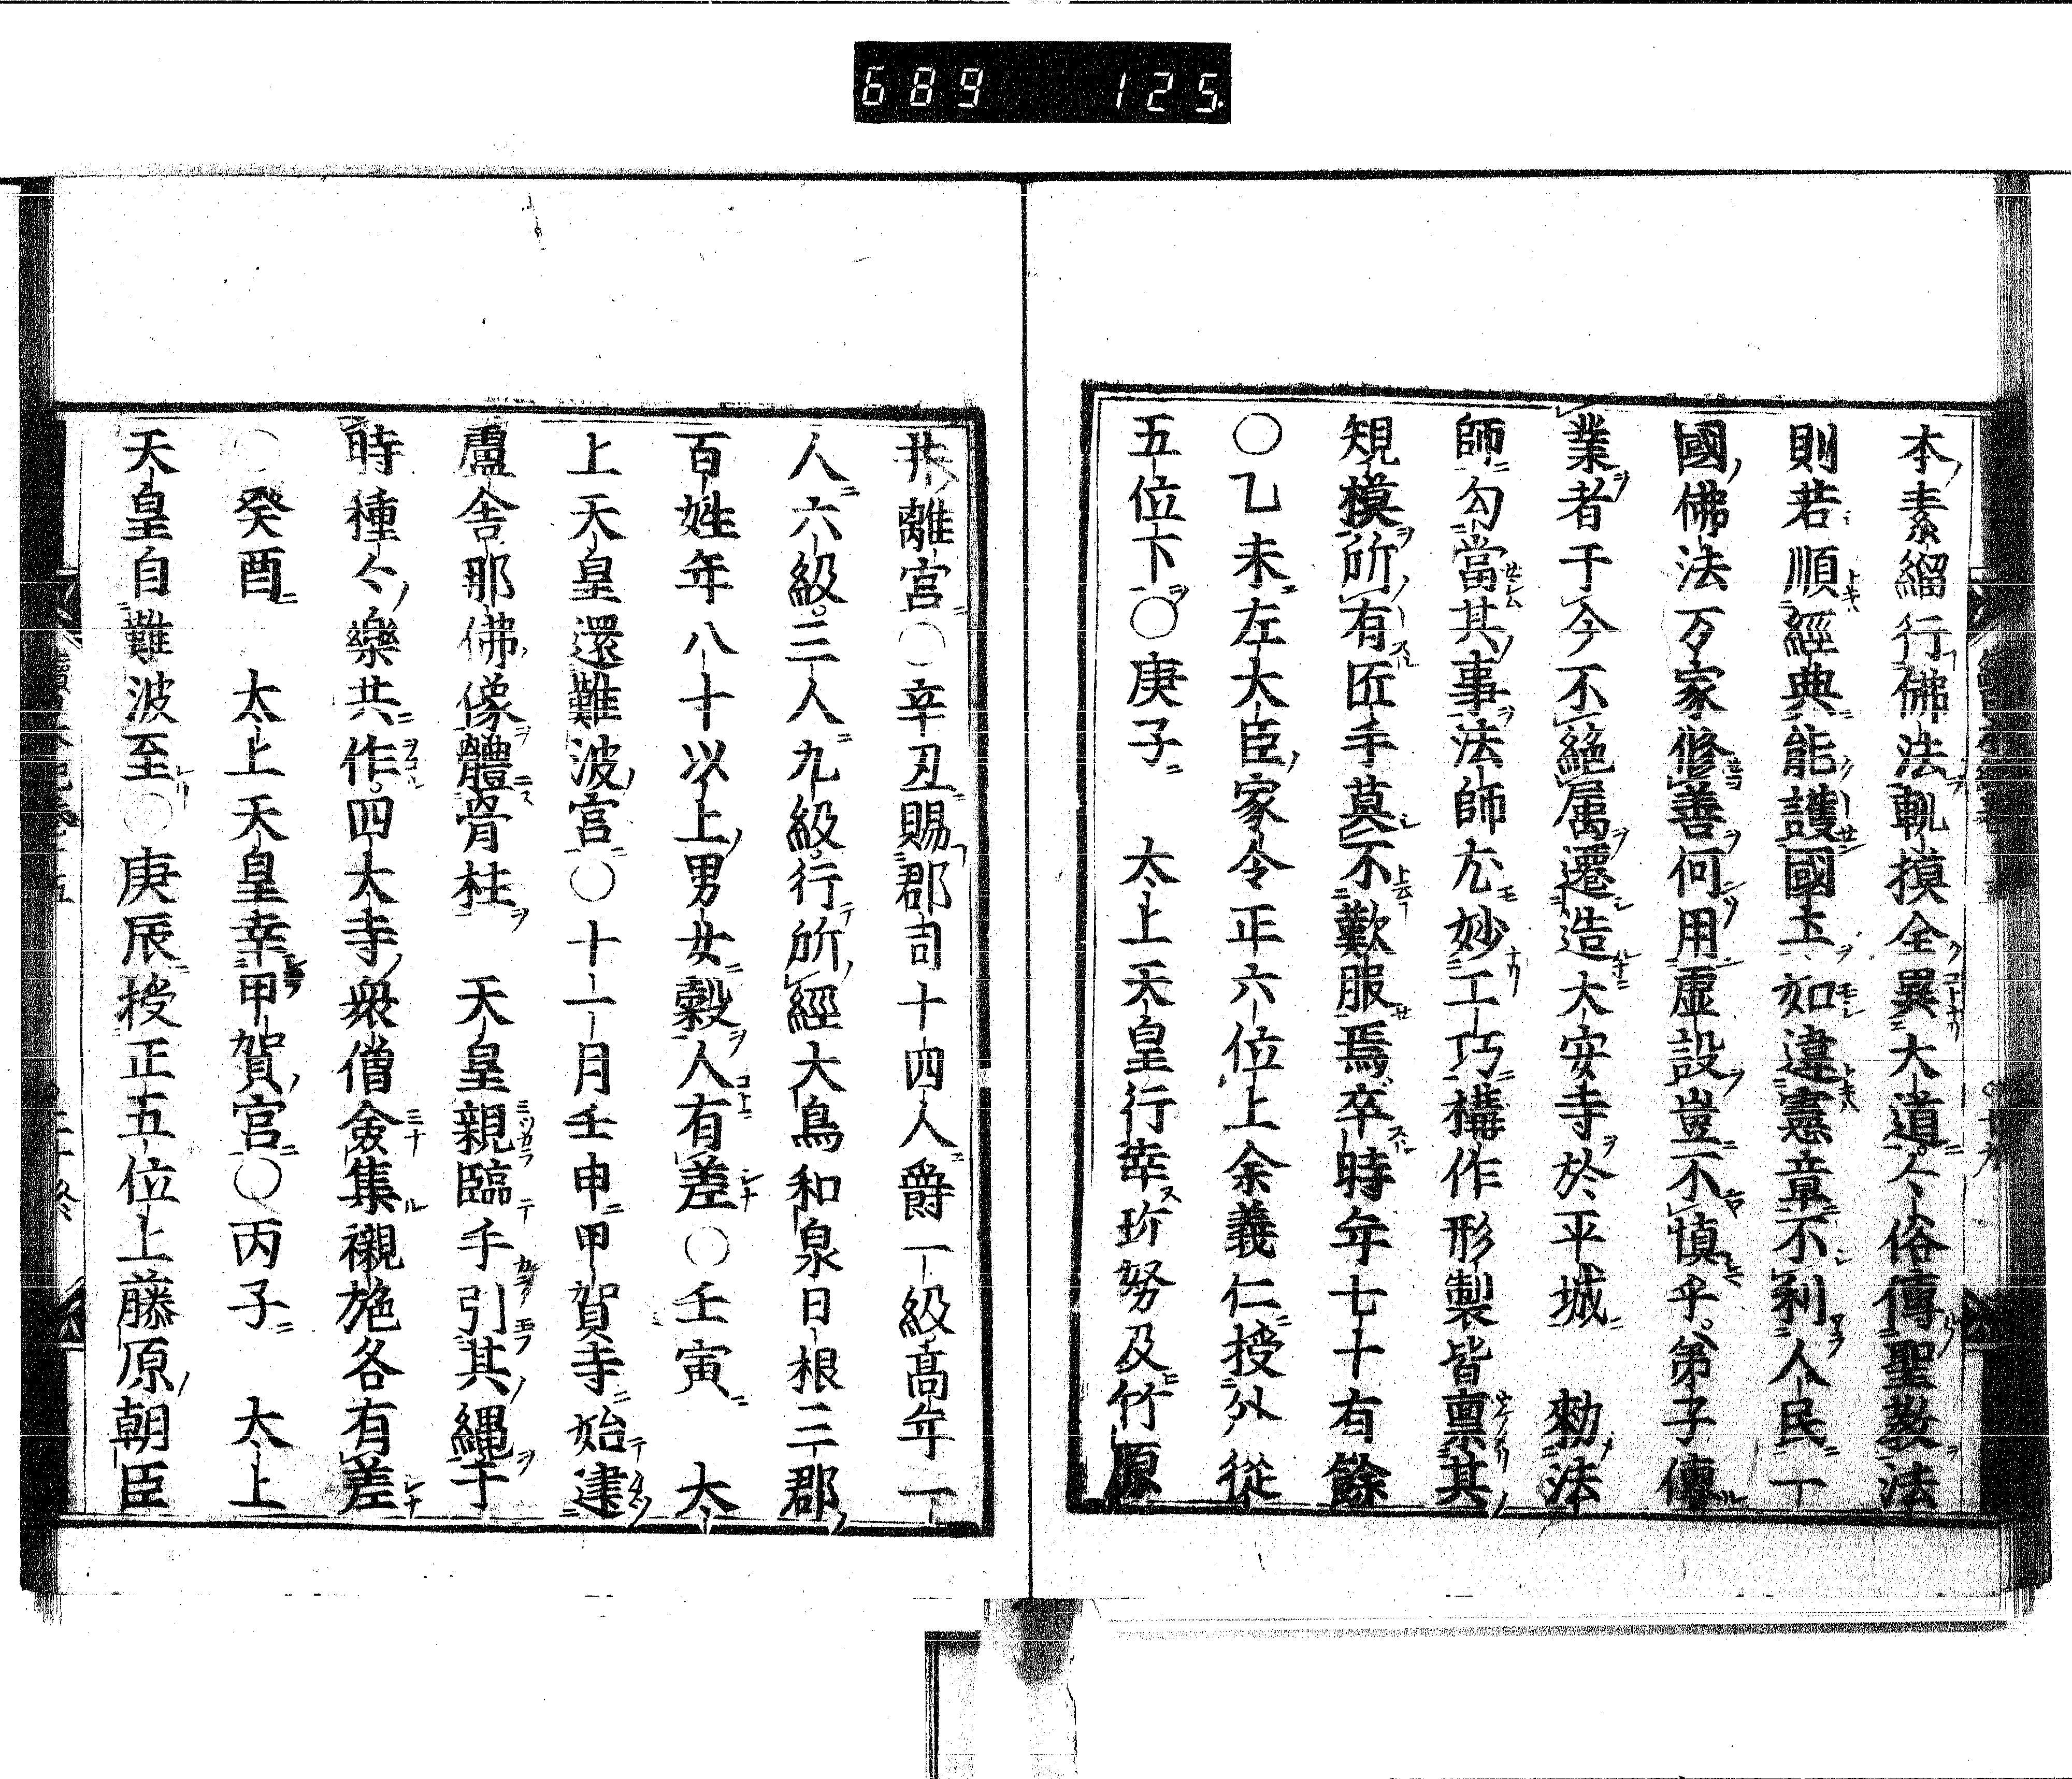 689 125
本素緇行佛法軌摸全異大道亽俗傳聖教法
則若順經典能護國土如違憲章不利人民一
國佛法万家修善何用虚設豈不慎乎弟子傳
業者于今不絶属遷造大安寺於平城 勅法
師勾當其事法師尤妙工巧構作形製皆禀其
規摸所有匠手莫不歎服焉卒時年七十有餘
〇乙未左大臣家令正六位上余義仁授外從
五位下〇庚子 太上天皇行幸珍努及竹原
井離宮〇辛丑賜郡司十四人爵一級高年一
人六級三人九級行所經大鳥和泉日根三郡
百姓年八十以上男女穀人有差〇壬寅 太
上天皇還難波宮〇十一月壬申甲賀寺始建
盧舎那佛像體骨柱 天皇親臨手引其縄于
時種々樂共作四大寺衆僧僉集襯施各有差
〇癸酉 太上天皇幸甲賀宮〇丙子 太上
天皇自難波至〇庚辰授正五位上藤原朝臣